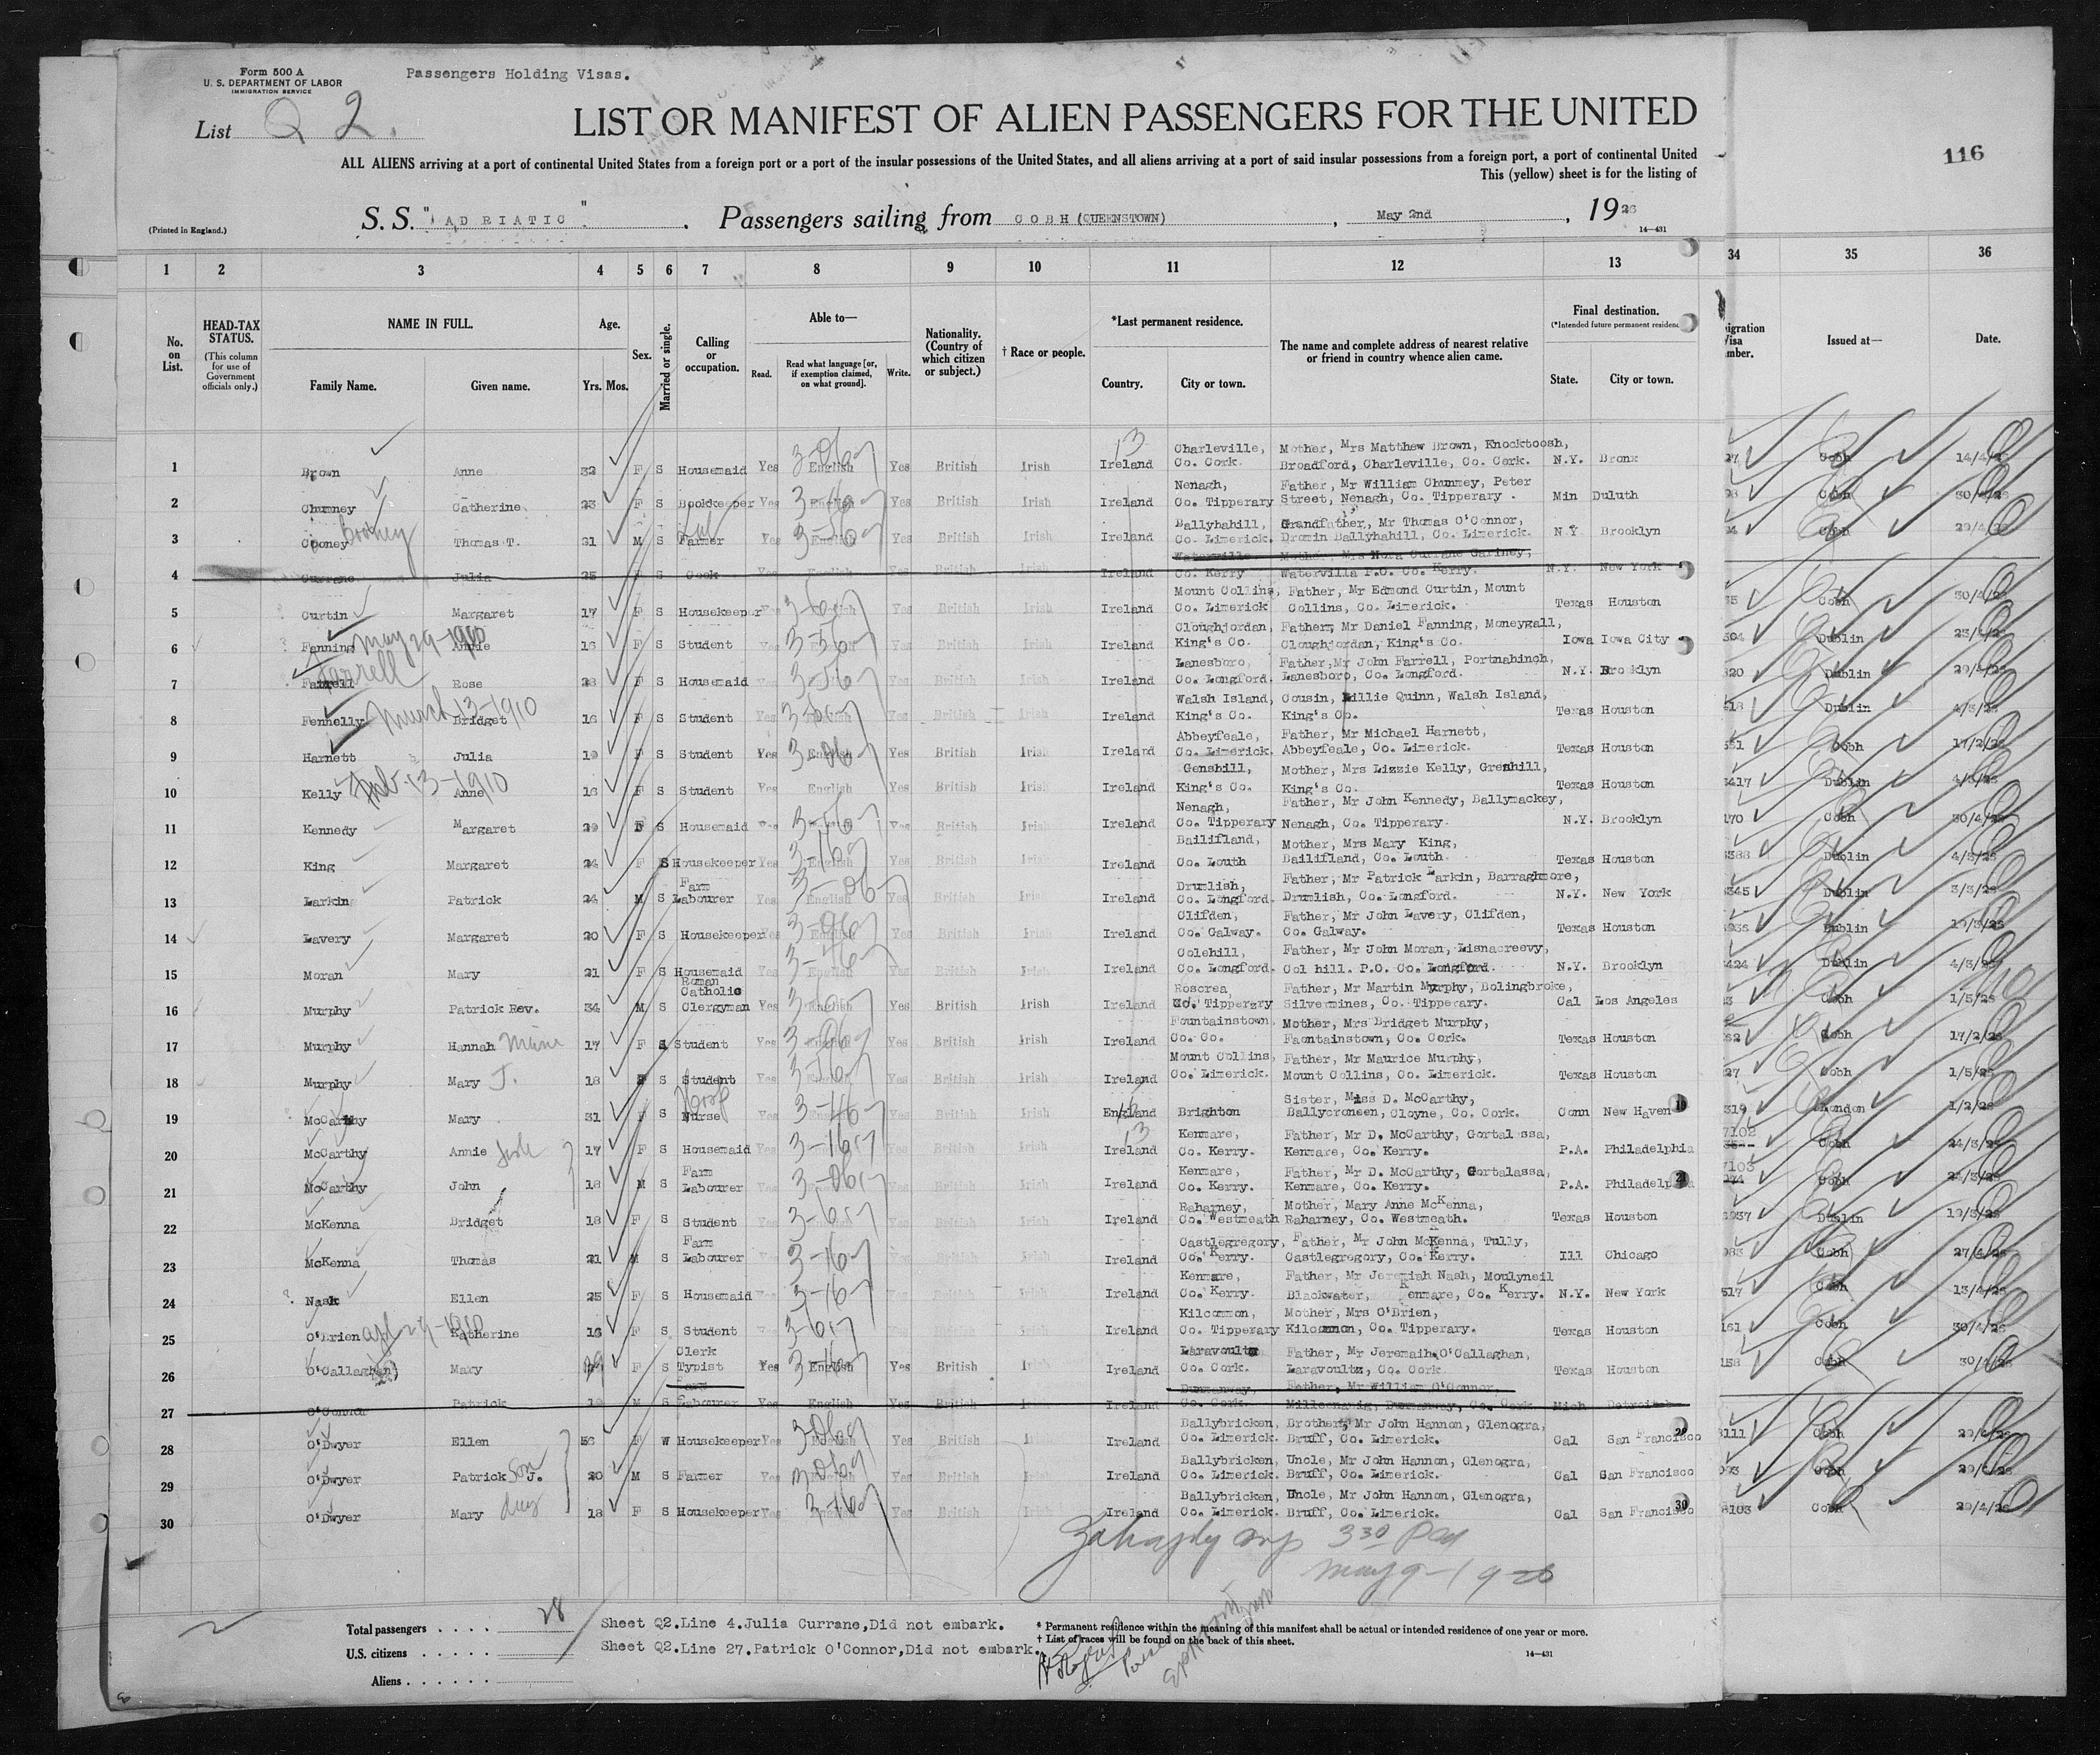 Form 500 A
U. S. DEPARTMENT OF LABOR
IMMIGRATION SERVICE
Passengers Holding Visas.
List Q 2.
LIST OR MANIFEST OF ALIEN PASSENGERS FOR THE UNITED
116
ALL ALIENS arriving at a port of continental United States from a foreign port or a port of the insular possessions of the United States, and all aliens arriving at a port of said insular possessions from a foreign port, a port of continental United
This (yellow) sheet is for the listing of
(Printed in England.)
S. S. "ADRIATIC". Passengers sailing from COBH (QUEENSTOWN), May 2nd, 1926
14—431
1 2 3 4 5 6 7 8 9 10 11 12 13 34 35 36
No. on List.
HEAD-TAX STATUS.
(This column for use of Government officials only.)
NAME IN FULL.
Family Name. Given name.
Age.
Yrs. Mos.
Sex.
Married or single.
Calling or occupation.
Able to—
Read. Read what language [or, if exemption claimed, on what ground]. Write.
Nationality. (Country of which citizen or subject.)
† Race or people.
*Last permanent residence.
Country. City or town.
The name and complete address of nearest relative or friend in country whence alien came.
Final destination.
(*Intended future permanent residence
State. City or town.
Issued at—
Date.
1 Brown Anne 32 F S Housemaid Yes English Yes British Irish Ireland Charleville, Co. Cork. Mother, Mrs Matthew Brown, Knocktoosh, Broadford, Charleville, Co. Cork. N.Y. Bronx 27 Cobh 14/4/26
2 Chumney Catherine 23 F S Bookkeeper Yes English Yes British Irish Ireland Nenagh, Co. Tipperary Father, Mr William Chumney, Peter Street, Nenagh, Co. Tipperary. Min Duluth Cobh 30/4/26
3 Cooney Cooney Thomas T. 31 M S Farmer Yes English Yes British Irish Ireland Ballyhahill, Co. Limerick. Grandfather, Mr Thomas O'Connor, Dromin Ballyhahill, Co. Limerick. N.Y. Brooklyn Cobh 29/4/26
4 Currane Julia 25 F S Cook Yes English Yes British Irish Ireland Waterville Co. Kerry Mother Mrs Nora Currane Waterville P.O. Co. Kerry. N.Y. New York
5 Curtin Margaret 17 F S Housekeeper Yes English Yes British Irish Ireland Mount Collins, Co. Limerick Father, Mr Edmond Curtin, Mount Collins, Co. Limerick. Texas Houston Cobh 30/4/26
6 Fanning May 29-1910 Annie 16 F S Student Yes English Yes British Irish Ireland Cloughjordan, King's Co. Father, Mr Daniel Fanning, Moneygall, Cloughjordan, King's Co. Iowa Iowa City 504 Dublin 23/4/26
7 Farrell Farrell Rose 28 F S Housemaid Yes English Yes British Irish Ireland Lanesboro, Co. Longford. Father, Mr John Farrell, Portnahinch, Lanesboro, Co. Longford. N.Y. Brooklyn 520 Dublin 29/4/26
8 Fennelly March 13-1910 Bridget 16 F S Student Yes English Yes British Irish Ireland Walsh Island, King's Co. Cousin, Lillie Quinn, Walsh Island, King's Co. Texas Houston 418 Dublin 4/3/26
9 Harnett Julia 19 F S Student Yes English Yes British Irish Ireland Abbeyfeale, Co. Limerick. Father, Mr Michael Harnett, Abbeyfeale, Co. Limerick. Texas Houston Cobh 17/2/26
10 Kelly Feb 13-1910 Anne 16 F S Student Yes English Yes British Irish Ireland Genshill, King's Co. Mother, Mrs Lizzie Kelly, Greshill, King's Co. Texas Houston 3417 Dublin 4/3/26
11 Kennedy Margaret 29 F S Housemaid Yes English Yes British Irish Ireland Nenagh, Co. Tipperary Father, Mr John Kennedy, Ballymackey, Nenagh, Co. Tipperary. N.Y. Brooklyn 170 Cobh 30/4/26
12 King Margaret 24 F S Housekeeper Yes English Yes British Irish Ireland Bailifland, Co. Louth Mother, Mrs Mary King, Bailifland, Co. Louth. Texas Houston 3388 Dublin 4/3/26
13 Larkin Patrick 24 M S Farm Labourer Yes English Yes British Irish Ireland Drumlish, Co. Longford. Father, Mr Patrick Larkin, Barraghmore, Drumlish, Co. Longford. N.Y. New York 3345 Dublin 3/3/26
14 Lavery Margaret 20 F S Housekeeper Yes English Yes British Irish Ireland Clifden, Co. Galway. Father, Mr John Lavery, Clifden, Co. Galway. Texas Houston Dublin 19/3/26
15 Moran Mary 21 F S Housemaid Yes English Yes British Irish Ireland Colehill, Co. Longford. Father, Mr John Moran, Lisnacreevy, Col hill. P.O. Co. Longford. N.Y. Brooklyn 3424 Dublin 4/3/26
16 Murphy Patrick Rev. 34 M S Roman Catholic Clergyman Yes English Yes British Irish Ireland Roscrea, Co. Tipperary Father, Mr Martin Murphy, Bolingbroke, Silvermines, Co. Tipperary. Cal Los Angeles Cobh 1/5/26
17 Murphy Hannah Maria 17 F S Student Yes English Yes British Irish Ireland Fountainstown, Co. Co. Mother, Mrs Bridget Murphy, Faontainstown, Co. Cork. Texas Houston Cobh 17/2/26
18 Murphy Mary J. 18 F S Student Yes English Yes British Irish Ireland Mount Collins, Co. Limerick. Father, Mr Maurice Murphy, Mount Collins, Co. Limerick. Texas Houston 27 Cobh 1/5/26
19 McCarthy Mary 31 F S Nurse Yes English Yes British Irish England Brighton Sister, Miss D. McCarthy, Ballycroneen, Cloyne, Co. Cork. Conn New Haven 319 London 1/2/26
20 McCarthy Annie 17 F S Housemaid Yes English Yes British Irish Ireland Kenmare, Co. Kerry. Father, Mr D. McCarthy, Gortalassa, Kenmare, Co. Kerry. P.A. Philadelphia 7102 Cobh 24/3/26
21 McCarthy John 18 M S Farm Labourer Yes English Yes British Irish Ireland Kenmare, Co. Kerry. Father, Mr D. McCarthy, Gortalassa, Kenmare, Co. Kerry. P.A. Philadelphia 7103 Cobh 24/3/26
22 McKenna Bridget 18 F S Student Yes English Yes British Irish Ireland Raharney, Co. Westmeath Mother, Mary Anne McKenna, Raharney, Co. Westmeath. Texas Houston 3937 Dublin 19/3/26
23 McKenna Thomas 21 M S Farm Labourer Yes English Yes British Irish Ireland Castlegregory, Co. Kerry. Father, Mr John McKenna, Tully, Castlegregory, Co. Kerry. Ill Chicago Cobh 27/4/26
24 Nash Ellen 25 F S Housemaid Yes English Yes British Irish Ireland Kenmare, Co. Kerry. Father, Mr Jeremiah Nash, Moulyneil Blackwater, Kenmare, Co. Kerry. N.Y. New York 517 Cobh 13/4/26
25 O'Brien apl 29-1910 Katherine 16 F S Student Yes English Yes British Irish Ireland Kilcommon, Co. Tipperary Mother, Mrs O'Brien, Kilcommon, Co. Tipperary. Texas Houston 161 Cobh 30/4/26
26 O'Callaghan Mary F S Clerk Typist Yes English Yes British Irish Ireland Laravoulta Co. Cork. Father, Mr Jeremaih O'Callaghan, Laravoulta, Co. Cork Texas Houston 158 Cobh 30/4/26
27 O'Connor Patrick 19 M S Farm Labourer Yes English Yes British Irish Ireland Dunmanway, Co. Cork. Father, Mr William O'Connor, Dunmanway, Co. Cork Mich Detroit
28 O'Dwyer Ellen 56 F W Housekeeper Yes English Yes British Irish Ireland Ballybricken, Co. Limerick. Brother, Mr John Hannon, Glenogra, Bruff, Co. Limerick. Cal San Francisco 8111 Cobh 29/4/26
29 O'Dwyer Patrick J. Son 20 M S Farmer Yes English Yes British Irish Ireland Ballybricken, Co. Limerick. Uncle, Mr John Hannon, Glenogra, Bruff, Co. Limerick. Cal San Francisco Cobh 29/4/26
30 O'Dwyer Mary 18 F S Housekeeper Yes English Yes British Irish Ireland Ballybricken, Co. Limerick. Uncle, Mr John Hannon, Glenogra, Bruff, Co. Limerick. Cal San Francisco 8103 Cobh 29/4/26
May 9-1926
Total passengers . . . . 28
U.S. citizens . . . . .
Aliens . . . . . .
Sheet Q2.Line 4.Julia Currane,Did not embark.
Sheet Q2.Line 27.Patrick O'Connor,Did not embark.
* Permanent residence within the meaning of this manifest shall be actual or intended residence of one year or more.
† List of races will be found on the back of this sheet.
14—431